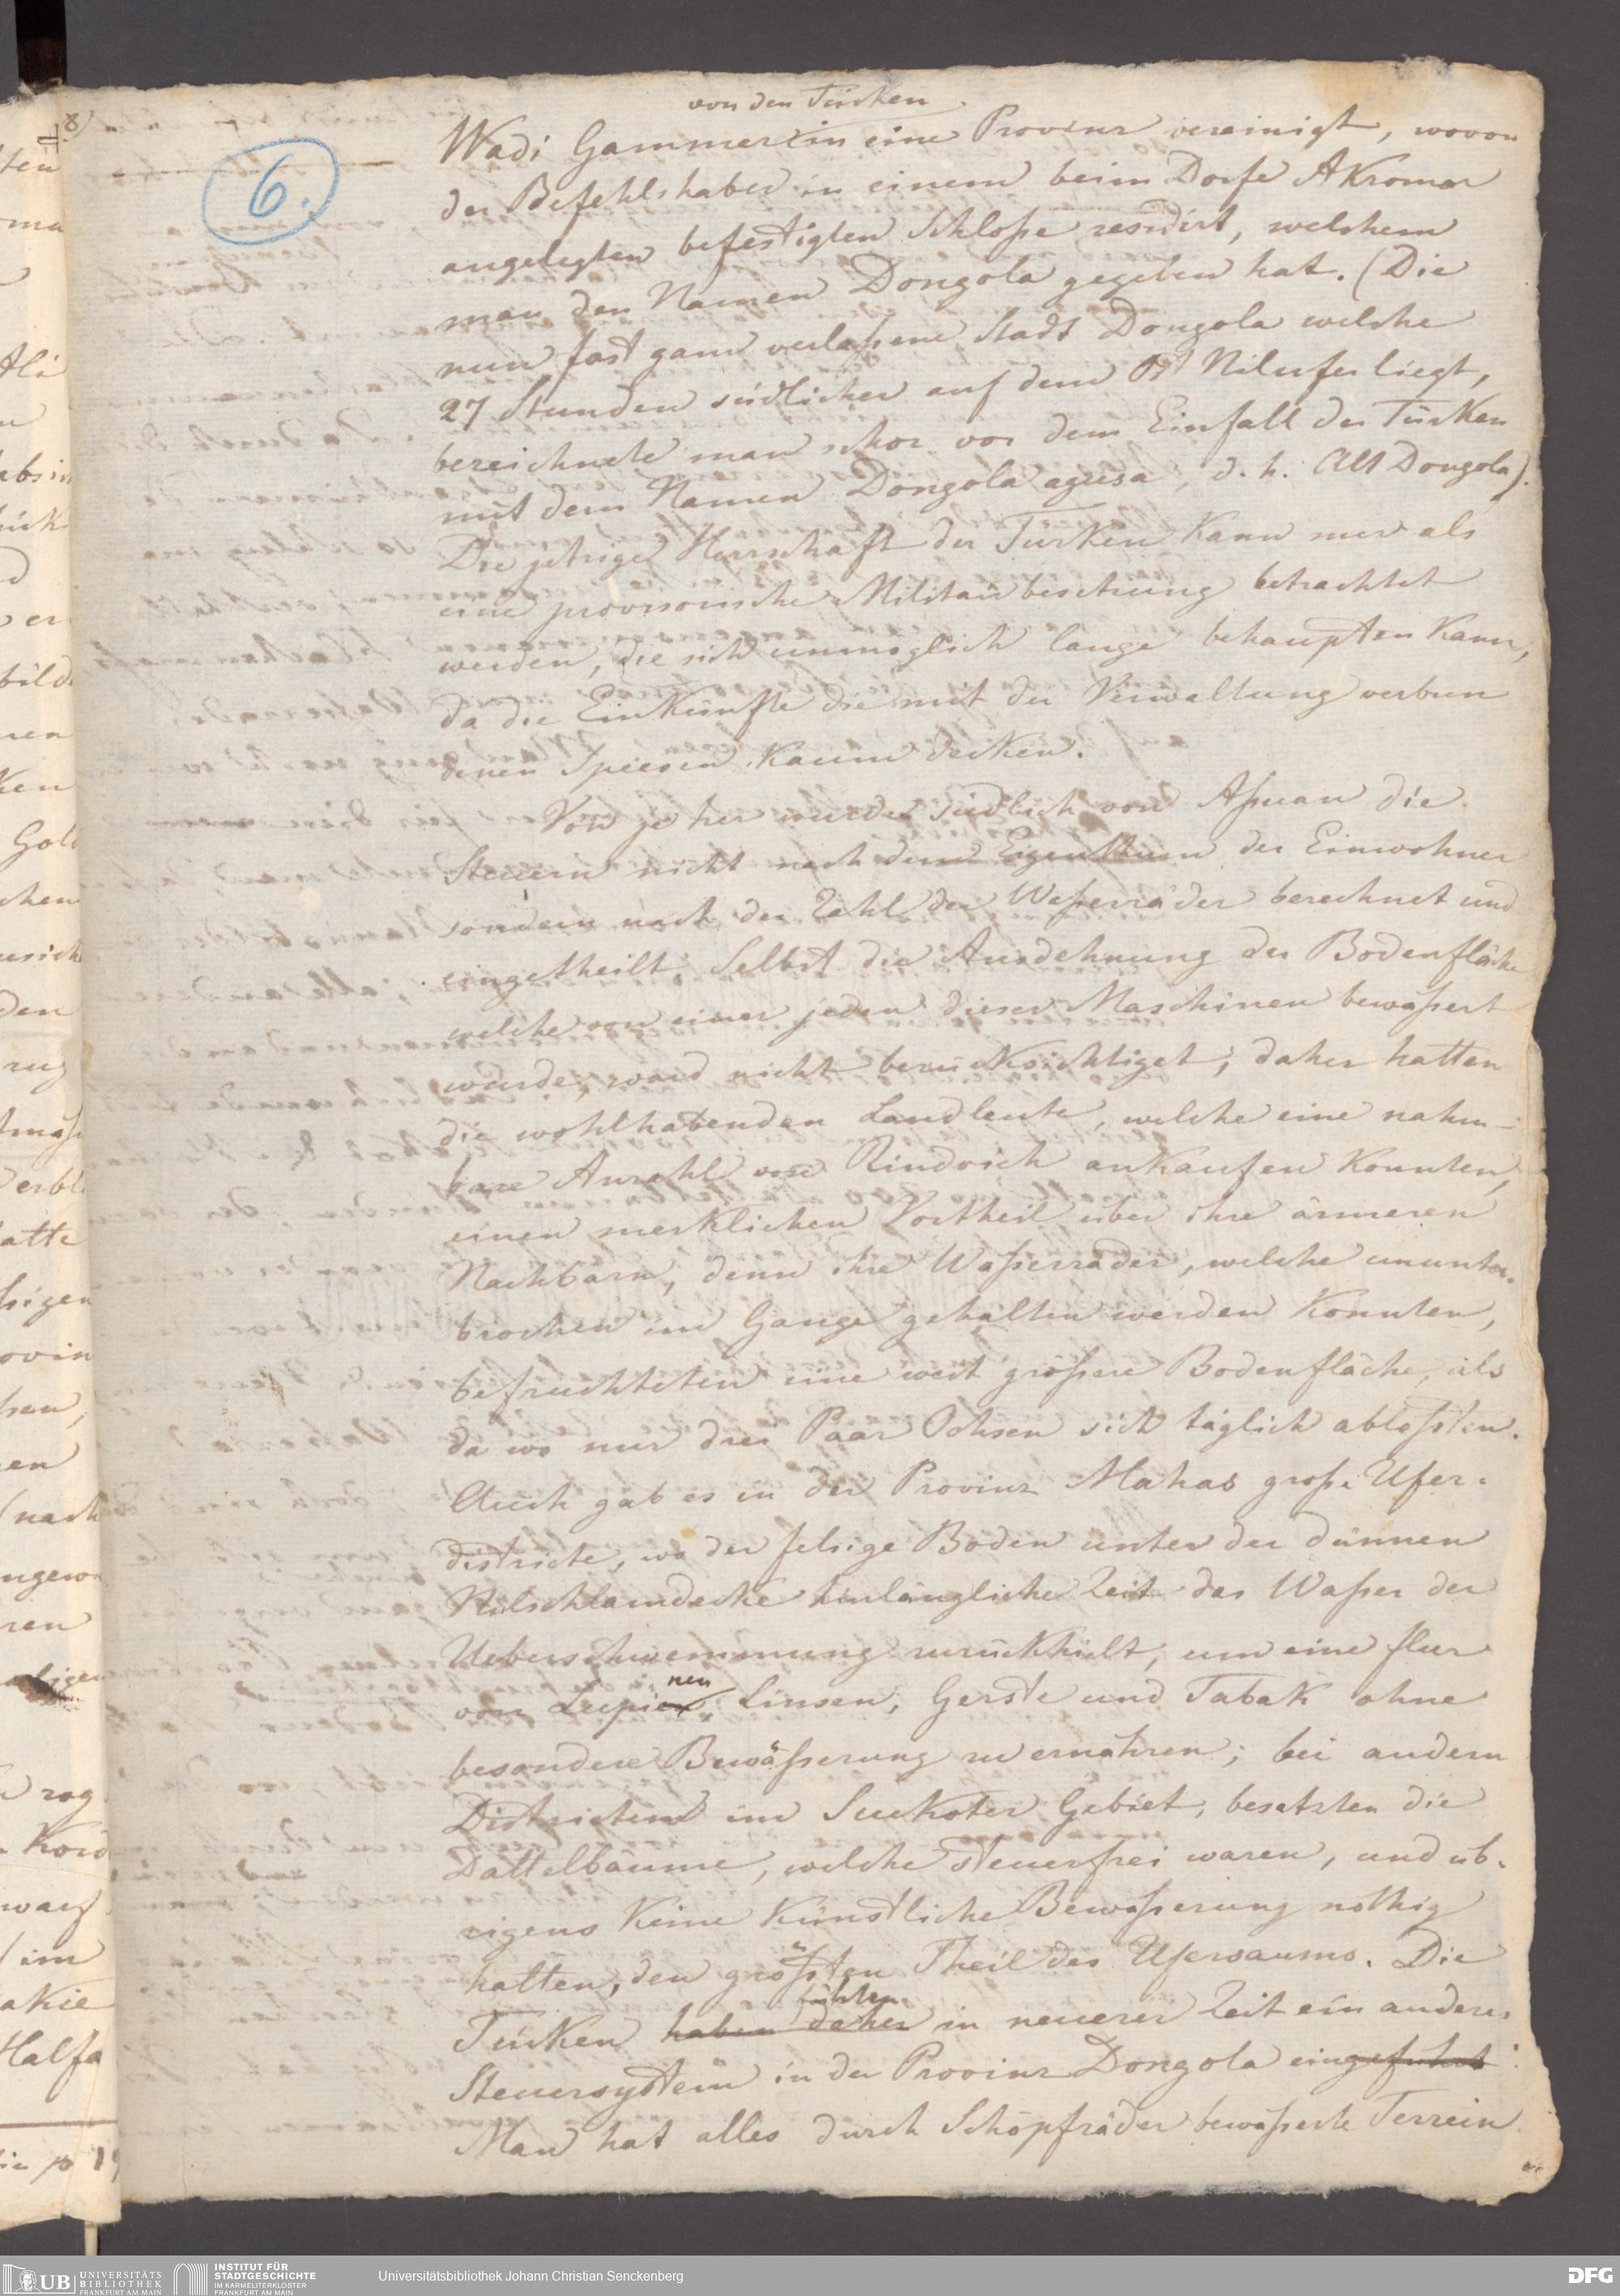 6.
von den Türken
Wadi Gammer in eine Provinz vereinigt, wovon
der Befehlshaber in einem beim Dorfe Akromar
angelegten befestigten Schloße residirt, welchem
man den Namen Dongola gegeben hat. (Die
nun fast ganz verlaßene Stadt Dongola welche
27 Stunden südlicher auf dem Nilufer liegt,
bezeichnete man schon vor dem Einfall der Türken
mit dem Namen Dongola agusa, d. h. Alt Dongola).
Die jetzige Herrschaft der Türken kann nur als
eine provisorische Militairbesetzung betrachtet
werden, die sich unmöglich lange behaupten kann,
da die Einkünfte die mit der Verwaltung verbun
denen Speesen kaum decken.
Von je her wurden südlich von Aßuan die
Steuern nicht nach dem Eigenthum der Einwohner
sondern nach der Zahl der Waßerräder berechnet und
eingetheilt. Selbst die Ausdehnung der Bodenfläche
welche von einer jeden dieser Maschinen bewäßert
wurde, ward nicht berücksichtiget; daher hatten
die wohlhabenden Landleute, welche eine nahm-
bare Anzahl von Rindvieh ankaufen konnten,
einen merklichen Vortheil über ihre ärmeren
Nachbarn, denn ihre Waßerräder, welche ununter-
brochen im Gange gehalten werden konnten,
befruchteten eine weit größere Bodenfläche, als
da wo nur drei Paar Ochsen sich täglich ablößten.
Auch gab es in der Provinz Mahas große Ufer-
districte, wo der felsige Boden unter der dünnen
Nilschlamdecke hinlängliche Zeit das Waßer der
Ueberschwemmung zurückhielt, um eine flur
von Lupinen, Linsen, Gerste und Tabak ohne
besondere Bewäßerung zu ernähren; bei andern
Districten im Suckoter Gebiet, besetzten die
Dattelbäume, welche steuerfrei waren, und üb-
rigens keine künstliche Bewäßerung nöthig
hatten, den größten Theil des Ufersaums. Die
führten
Türken haben daher in neuerer Zeit ein anderes
Steuersystem in der Provinz Dongola eingeführt:
Man hat alles durch Schöpfräder bewäßerte Terrein
UB UNIVERSITÄTS BIBLIOTHEK FRANKFURT AM MAIN
INSTITUT FÜR STADTGESCHICHTE IM KARMELITERKLOSTER FRANKFURT AM MAIN
Universitätsbibliothek Johann Christian Senckenberg
DFG